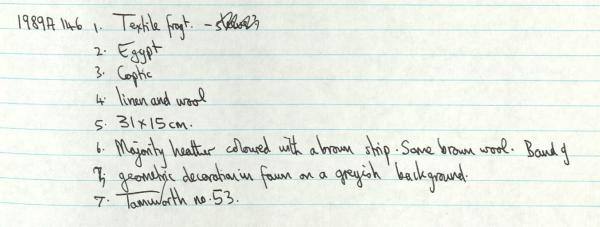 1989A146 1. Textile fragt. -
2. Egypt
3. Coptic
4. linen and wool
5. 31 x 15 cm.
6. Majority heather coloured with a brown strip. Some brown wool. Band of
geometric decoration in fawn on a greyish background.
7. Tamworth no. 53.